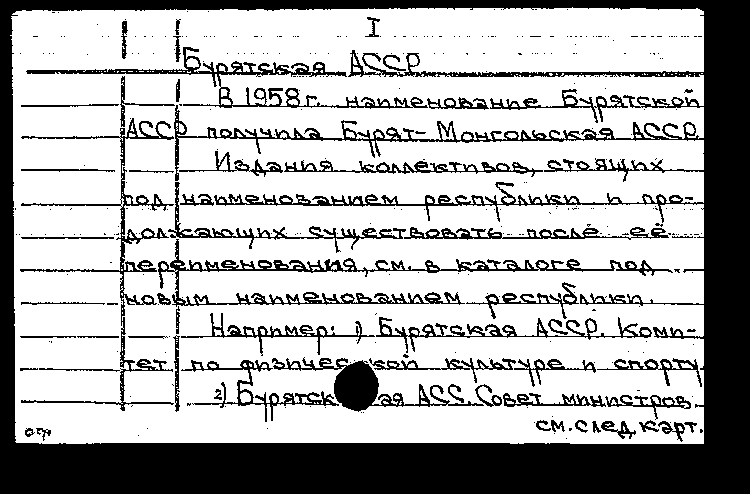 I
Бурятская АССР
В 1958 г. наименование Бурятской
АССР получила Бурят-Монгольская АССР
Издания коллективов, стоящих
под наименованием республики и про-
должающих существовать после её
переименования, см. в каталоге под
новым наименованием республики.
Например: 1) Бурятская АССР. Коми-
тет по физической культуре и спорту
2) Бурятская АСС. Совет министров
см. след. карт.